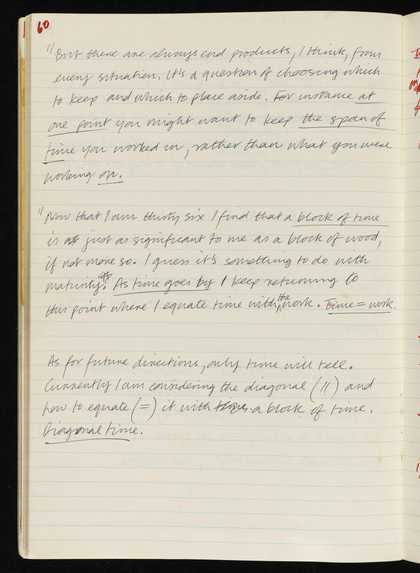 60
"But there are always end products, I think, from
every situation. It's a question of choosing which
to keep and which to place aside. For instance at
one point you might want to keep the span of
time you worked in, rather than what you were
working on.
"Now that I am thirty six I find that a block of time
is just as significant to me as a block of wood,
if not more so. I guess it's something to do with
maturity. As time goes by I keep returning to
this point where I equate time with the work. Time = work.
As for future directions, only time will tell.
Currently I am considering the diagonal (//) and
how to equate (=) it with a block of time.
Diagonal time.